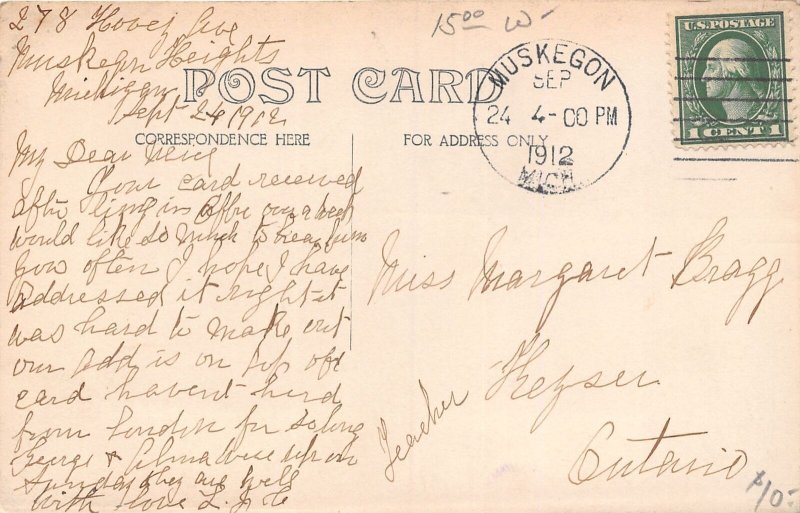 278 Hovey Ave
Muskegon Heights
Michigan
Sept 24 1912
15 00 W
POST CARD
CORRESPONDENCE HERE
FOR ADDRESS ONLY
MUSKEGON
SEP
24 4-00 PM
1912
MICH.
U.S. POSTAGE
1 CENT 1
My Dear
Your card received
after in office over a week
would like so much to hear from
you often I hope I have
addressed it right it
was hard to make out
our add is on top of
card havent herd
from for so long
George & Alma were up on
Sunday they are well
with love L.
Miss Margaret Bragg
Keyser
Teacher
Ontario